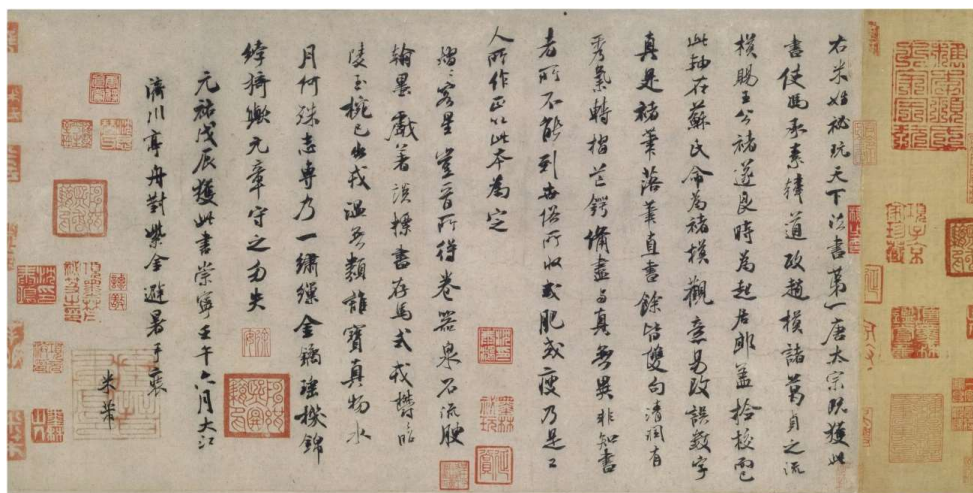 右米姓祕玩天下法書第一唐太宗既獲此
書使馮承素韓道政趙模諸葛貞之流
模賜王公褚遂良時為起居郎蓋檢校而已
此軸在蘇氏命為褚模觀意易改誤數字
真是褚筆落筆直書餘皆雙勾清潤有
秀氣轉摺芒鍔備盡与真無異非知書
者所不能到世俗所收或肥或瘦乃是工
人所作正以此本為定
熠〻客星豈晉所得卷器泉石流腴
翰墨戲著談標書存馬式欝〻昭
陵玉椀已出戎溫無類誰寶真物水
月何殊志專乃一繡繅金鐍瑤機錦
綍猗歟元章守之勿失
元祐戊辰獲此書崇寧壬午六月大江
濟川亭舟對紫金避暑手裝
米芾
項子京家珍藏